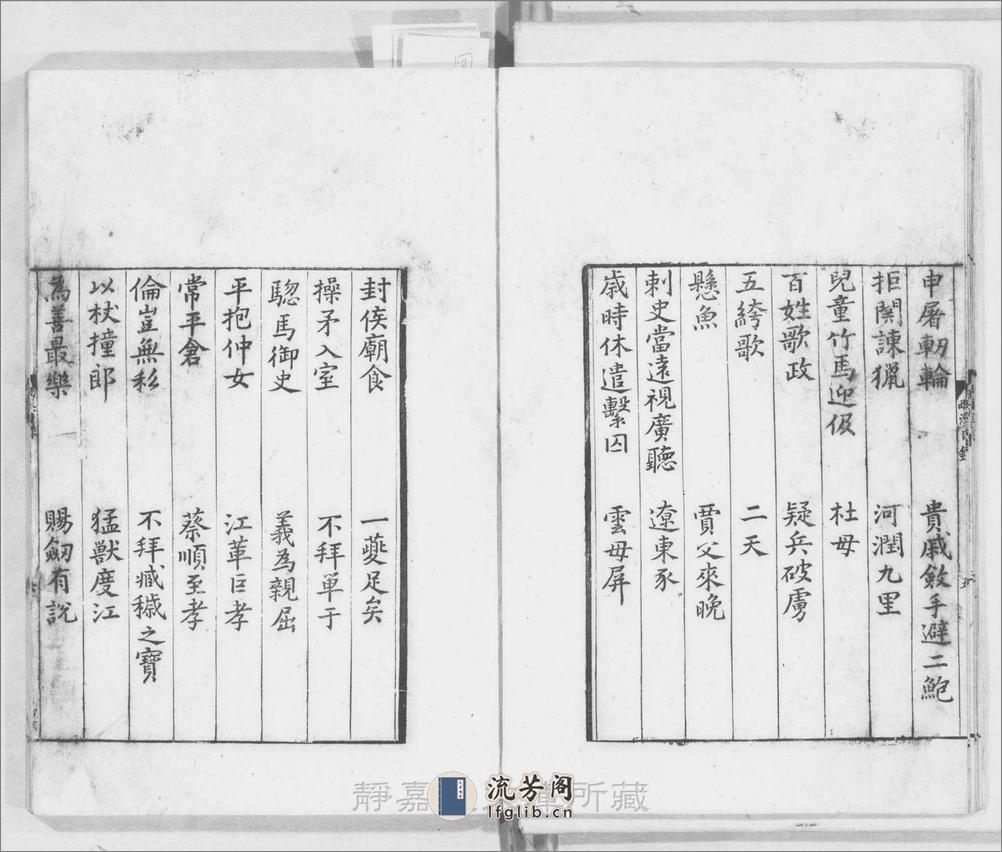 申屠軔輪
貴戚斂手避二鮑
拒関諫猟
河潤九里
兒童竹馬迎伋
杜母
百姓歌政
疑兵破虜
五綺歌
二天
懸魚
賈父來晚
刺史當遠視廣聽
遼東豕
歲時休遣繫囚
雲母屏
封侯廟食
一夔足矣
操矛入室
不拜單于
驄馬御史
義為親屈
平抱仲女
江革巨孝
常平倉
蔡順至孝
倫豈無私
不拜臧穢之寶
以杖撞郎
猛獸度江
為善最樂
賜劒有說
靜嘉 所藏
流芳阁
lfglib.cn